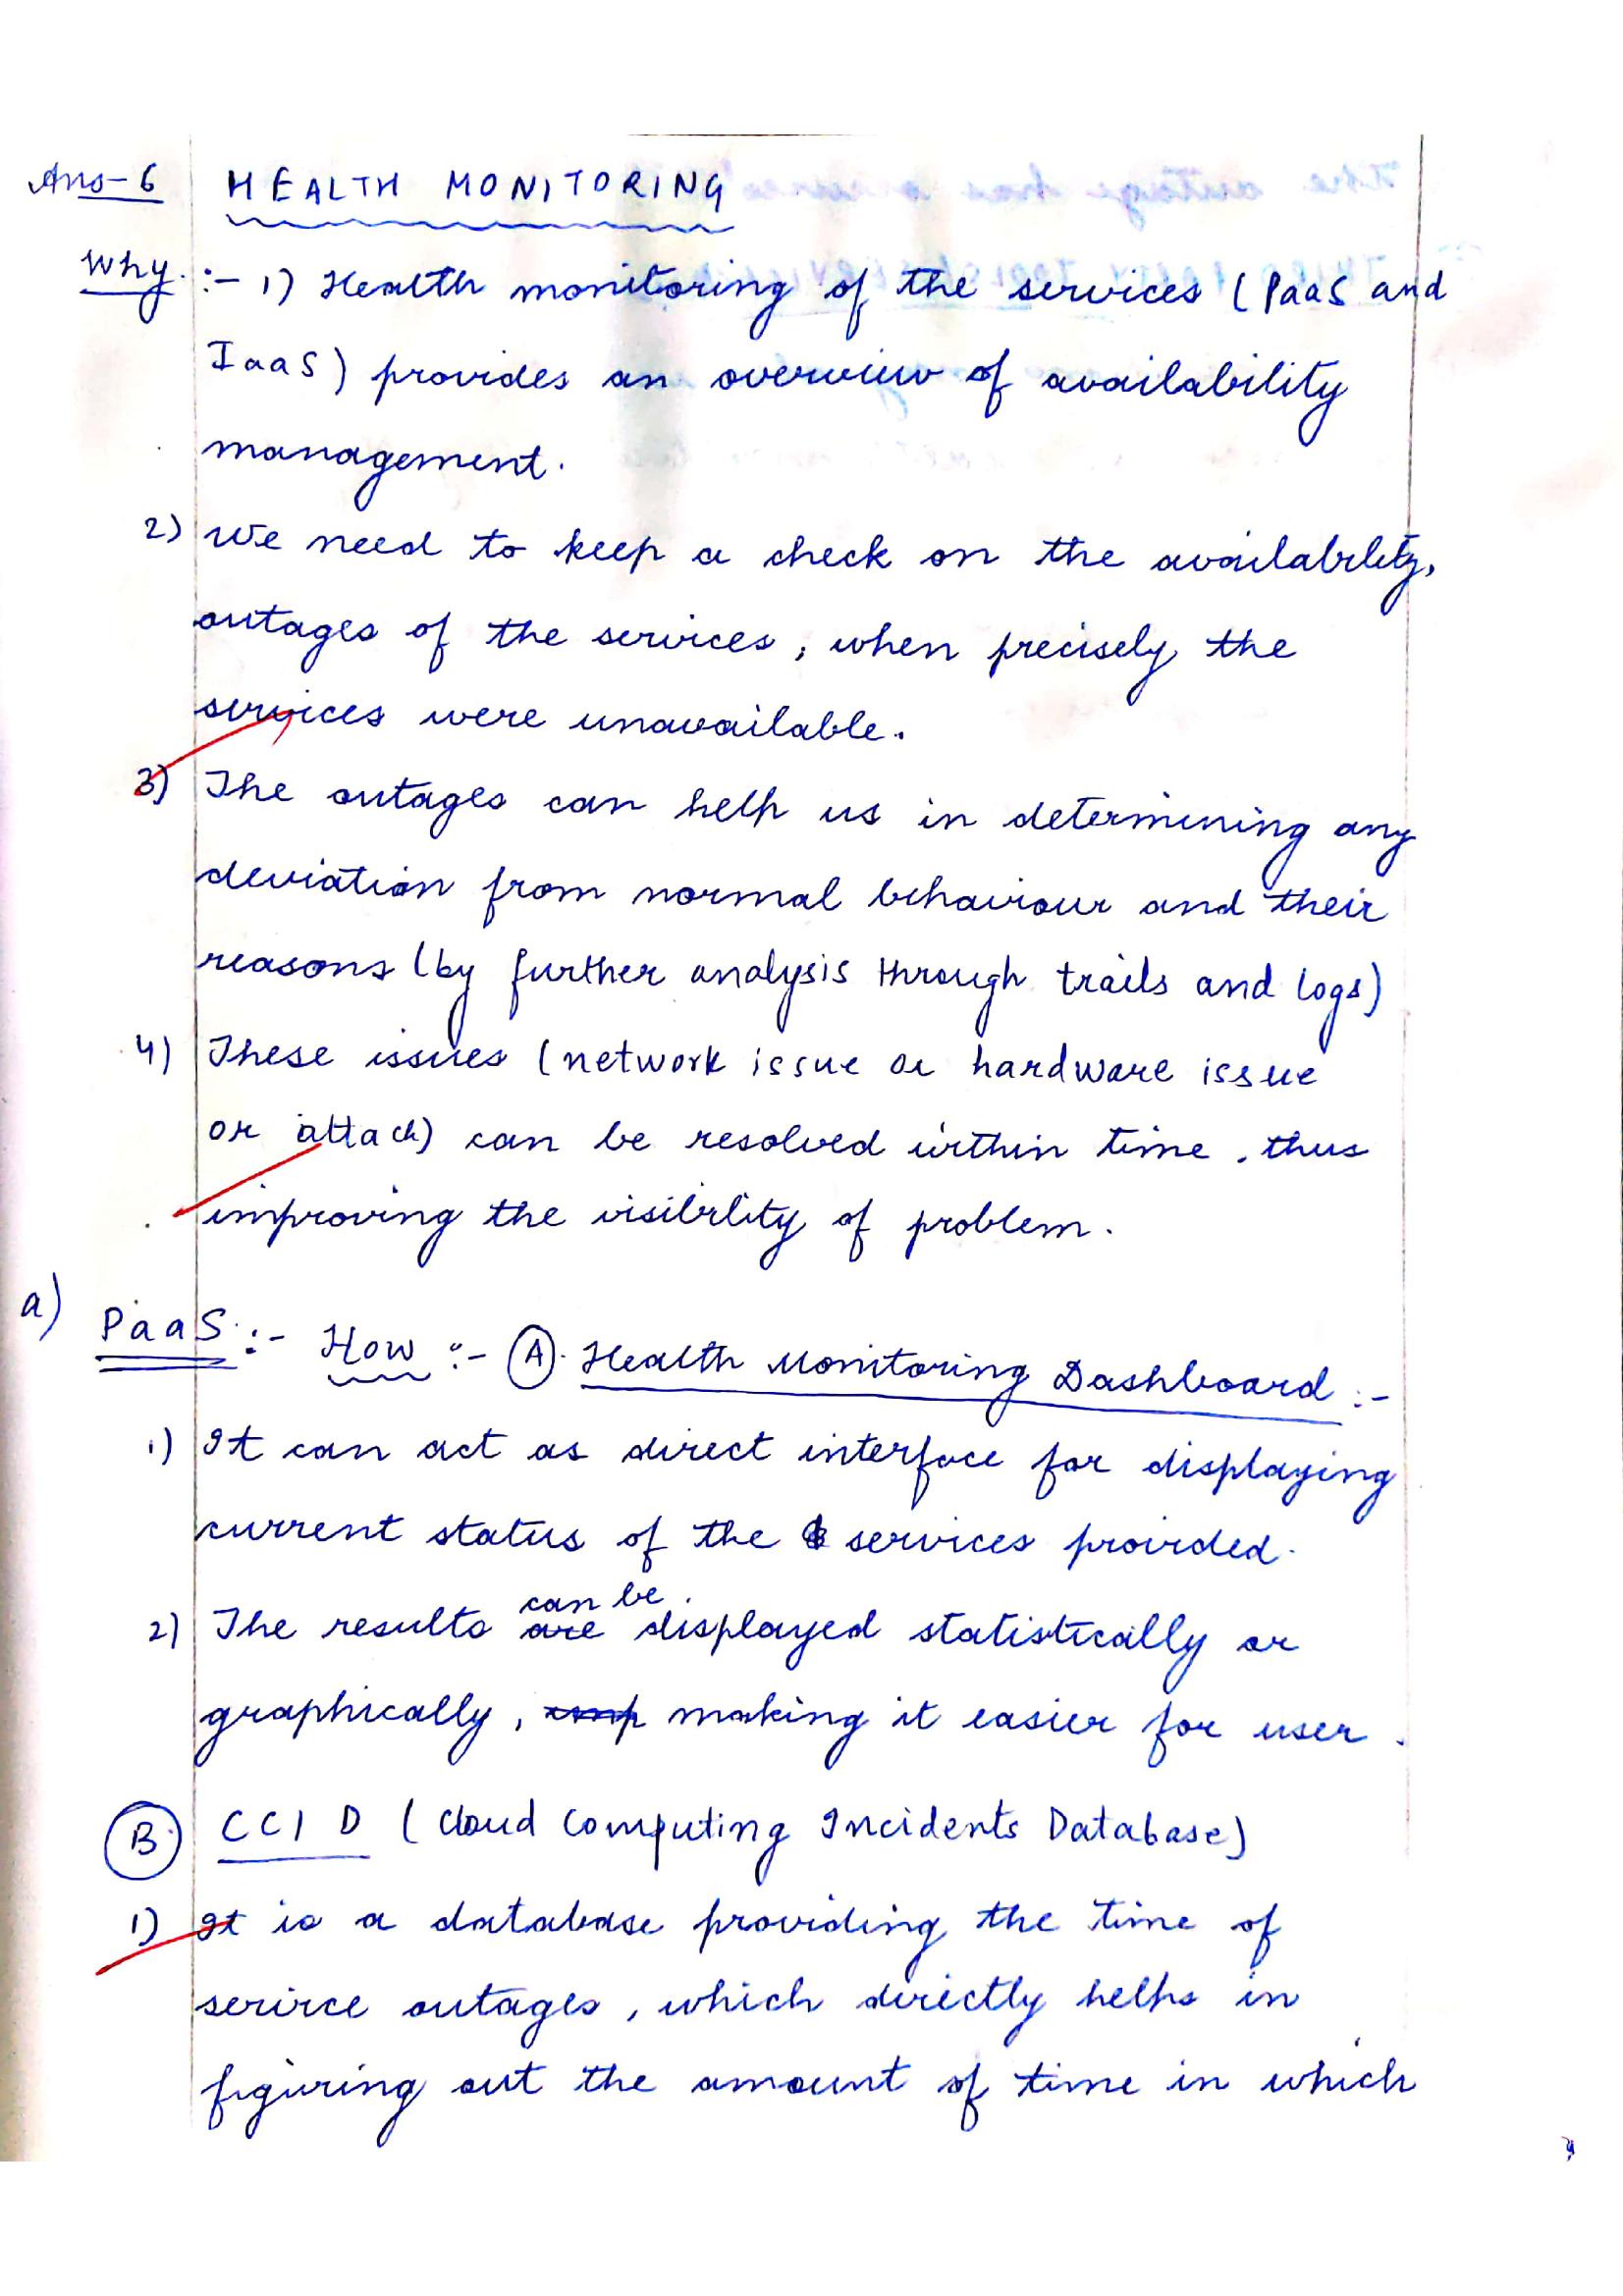 Ans-6 HEALTH MONITORING
Why :- 1) Health monitoring of the services (PaaS and
IaaS) provides an overview of availability
management.
2) We need to keep a check on the availability,
outages of the services, when precisely the
services were unavailable.
3) The outages can help us in determining any
deviation from normal behaviour and their
reasons (by further analysis through trails and logs)
4) These issues (network issue or hardware issue
or attack) can be resolved within time, thus
improving the visibility of problem.
a) PaaS :- How :- (A) Health Monitoring Dashboard :-
1) It can act as direct interface for displaying
current status of the services provided.
can be
2) The results are displayed statistically or
graphically, making it easier for user.
(B) CCID (Cloud Computing Incidents Database)
1) It is a database providing the time of
service outages, which directly helps in
figuring out the amount of time in which